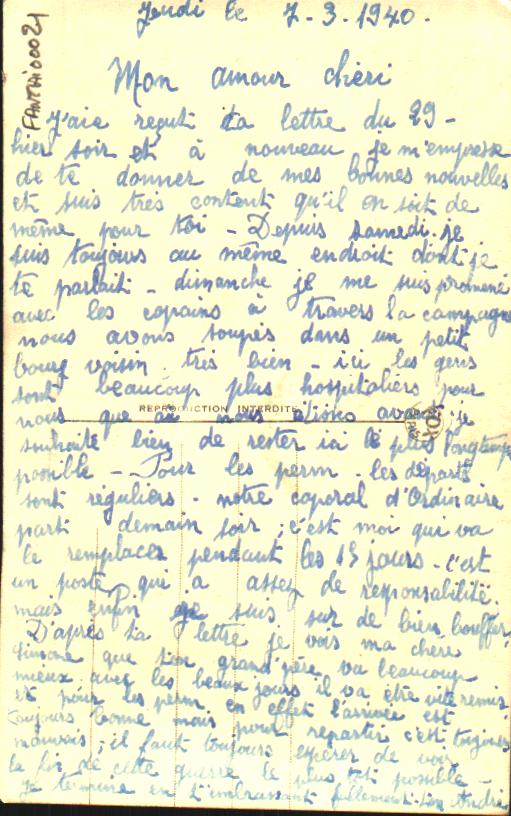 FANTAI00021
Jeudi le 7-3.1940.
Mon amour chéri
J'aie reçut ta lettre du 29 -
hier soir et à nouveau je m'empresse
de te donner de mes bonnes nouvelles
et suis très content qu'il en soit de
même pour toi - Depuis samedi je
suis toujours au même endroit dont je
te parlait - dimanche je me suis promené
avec les copains à travers la campagne
nous avons soupés dans un petit
bourg voisin très bien - ici les gens
sont beaucoup plus hospitaliers pour
REPRODUCTION INTERDITE
nous que où nous étions avant je
souhaite bien de rester ici le plus longtemps
possible - Pour les perm. les départs
sont réguliers - notre caporal d'Ordinaire
part demain soir, c'est moi qui va
le remplacer pendant les 15 jours - c'est
un poste qui a assez de responsabilité.
mais enfin je suis sur de bien bouffer
D'après ta lettre je vois ma chère
Simone que ton grand père va beaucoup
mieux avec les beaux jours il va être vite remis
et pour les perm. en effet l'arrivée est
toujours bonne mais pour repartir c'est toujours
mauvais, il faut toujours espérer de voir
la fin de cette guerre le plus tôt possible -
Je termine en t'embrassant follement. Ton André